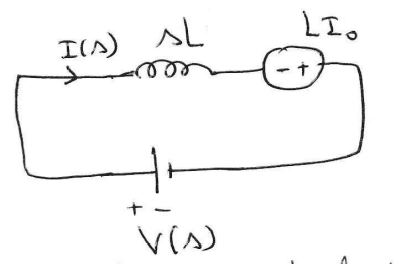 I(s)
sL
LI₀
- +
+ -
V(s)